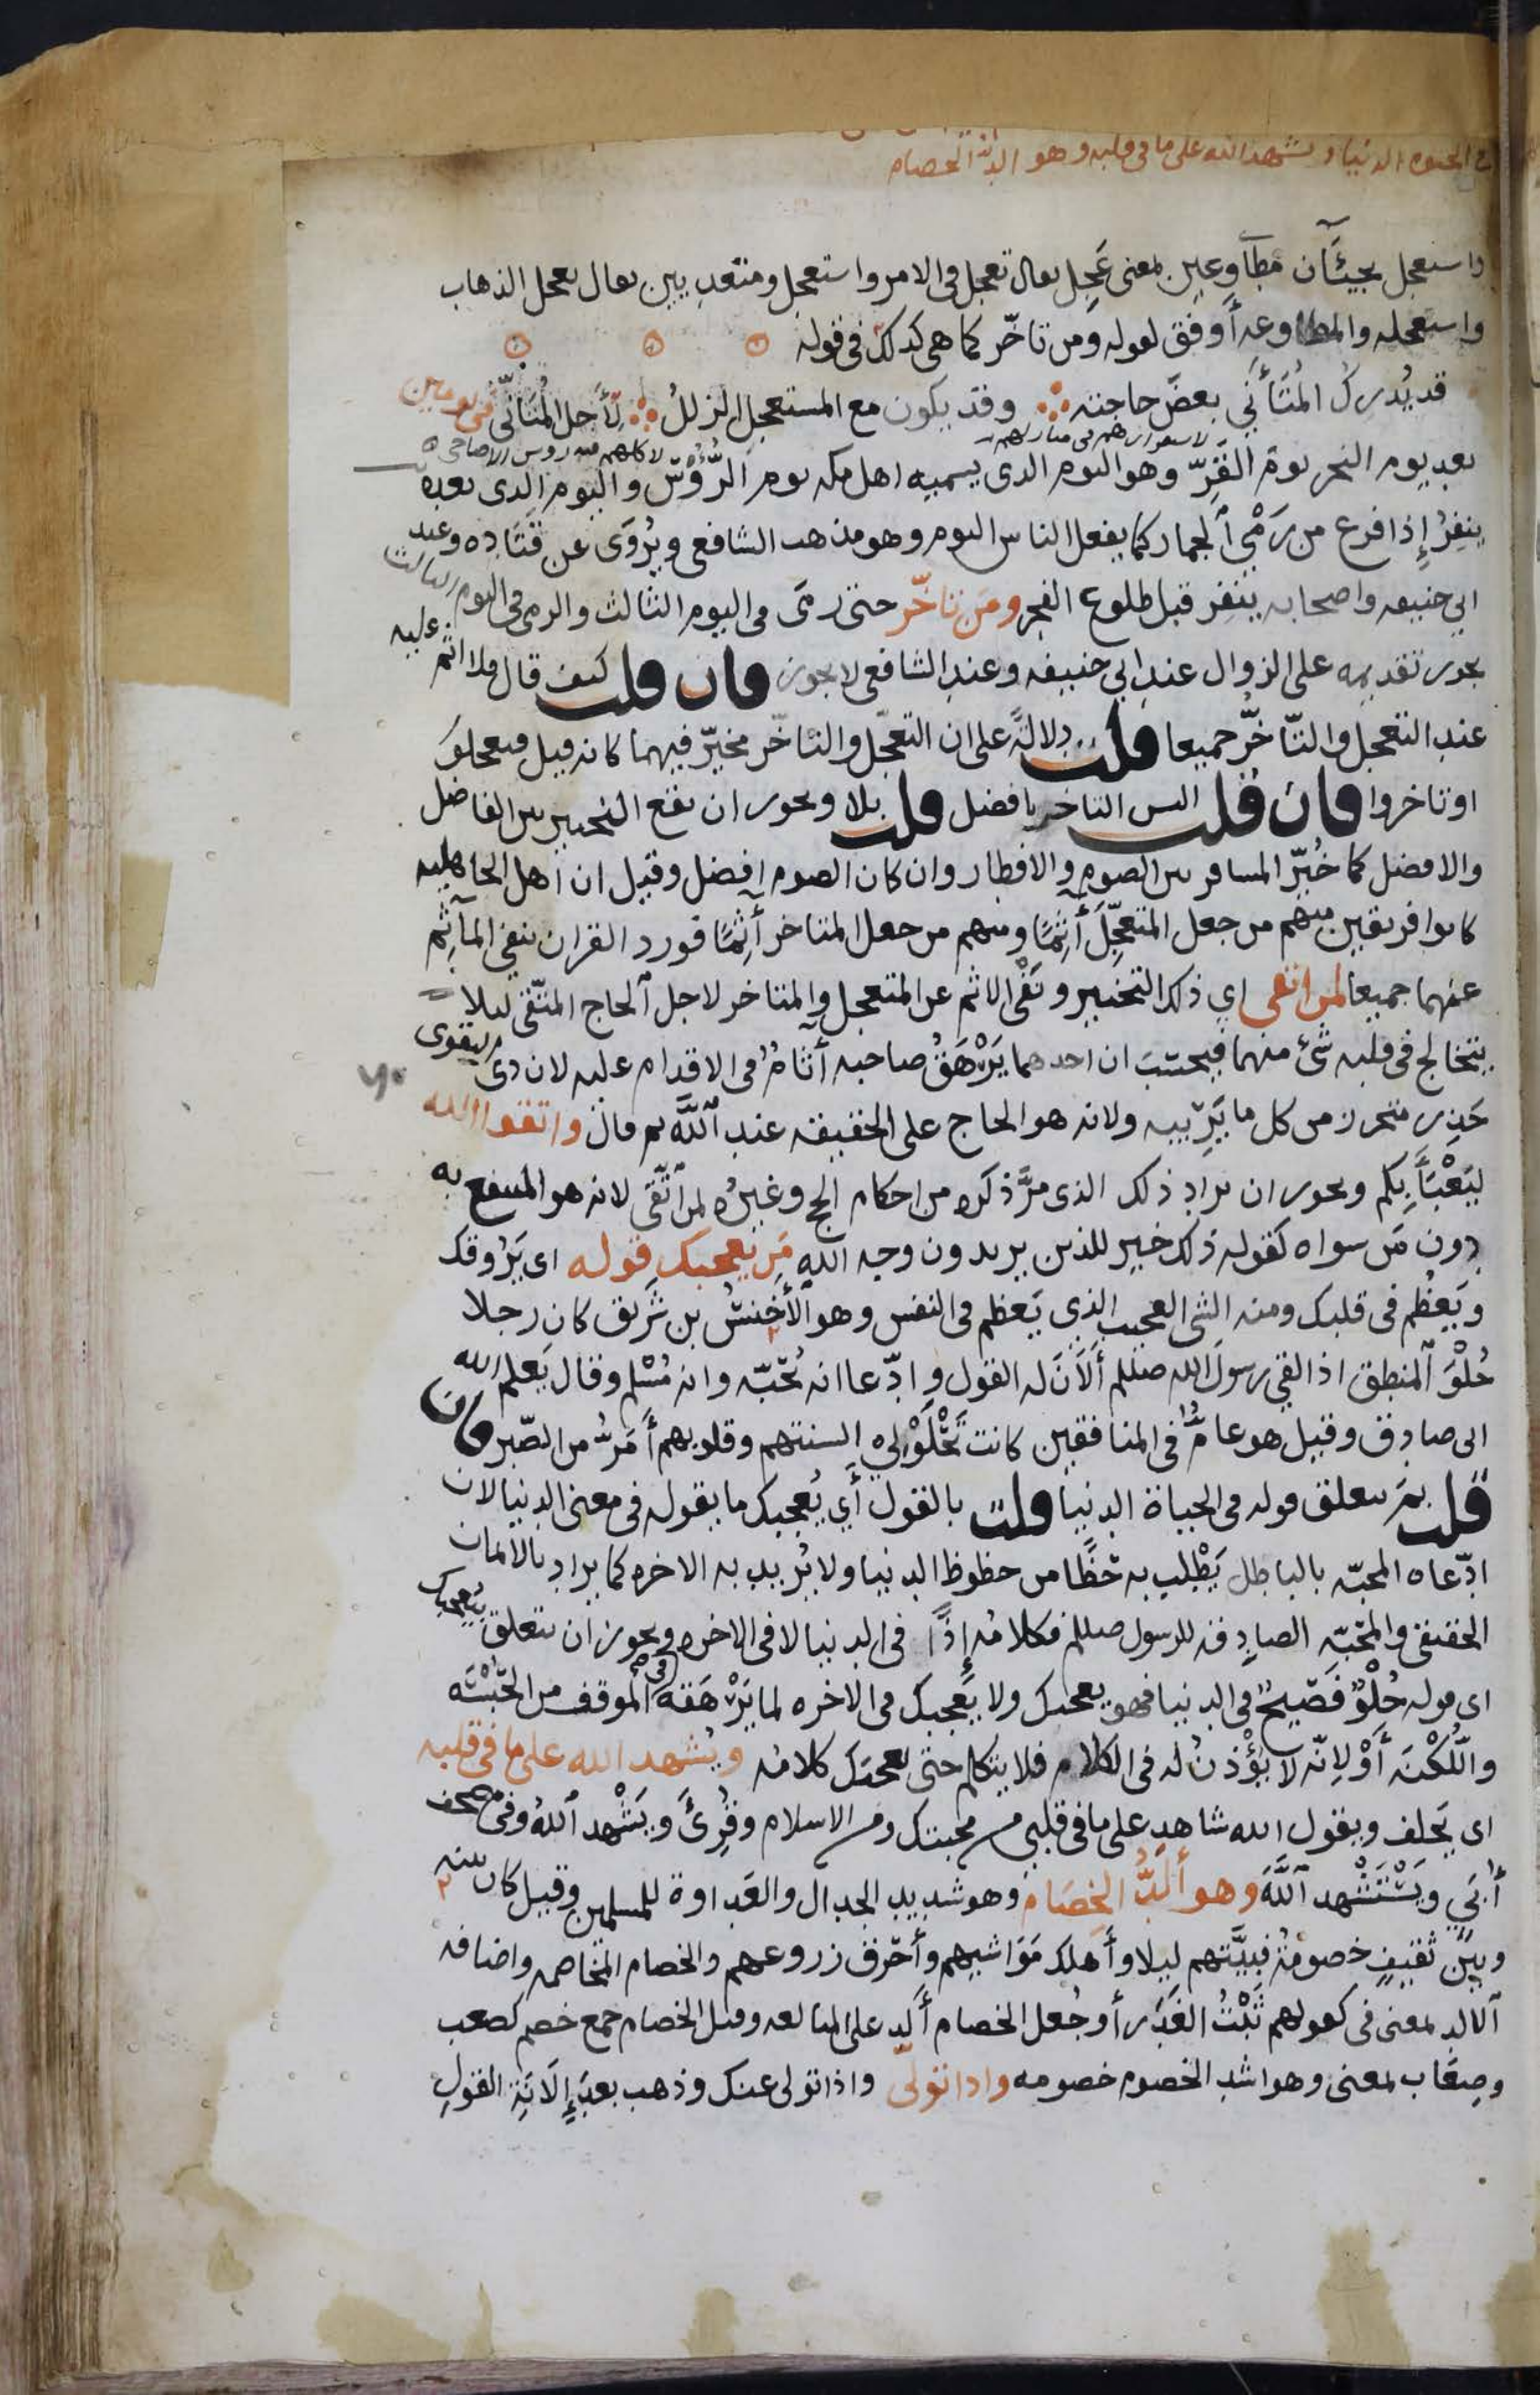 في الحيوه الدنيا ويشهد الله على ما في قلبه وهو الد الخصام
واستعجل يجيئان مطاوعين بمعنى عجل يقال تعجل في الامر واستعجل ومتعديين يقال تعجل الذهاب
واستعجله والمطاوعه أوفق لقوله ومن تاخّر كما هي كذلك في قوله
قد يُدرك المُتَأَنّي بعضَ حاجته وقد يكون مع المستعجل الزللُ لِأجل المُتَأنّي في يومين
لاستقرارهم في منازلهم
لاكلهم فيه روس الاضاحي
بعد يوم النحر يوم القَرّ وهو اليوم الذي يسميه اهل مكه يوم الرُّؤُس واليوم الذي بعده
ينفِرُ إذا فرغ من رَمْي الجمار كما يفعل الناس اليوم وهو مذهب الشافعي ويُروَى عن قَتَاده وعند
ابي حنيفه واصحابه ينفر قبل طلوع الفجر ومَن تأخّر حتى رمَى في اليوم الثالث والرمي في اليوم الثالث
يجوز تقديمه على الزوال عند ابي حنيفه وعند الشافعي لا يجوز فان قلت كيف قال فلا اثم عليه
عند التعجل والتأخّر جميعا قلت دلالةً على ان التعجّل والتاخّر مخيّر فيهما كانه قيل فتعجلوا
او تاخروا فان قلت اليس التاخر بافضل قلت بلا ويجوز ان يقع التخيير بين الفاضل
والافضل كما خُيّر المسافر بين الصوم والافطار وان كان الصوم افضل وقيل ان اهل الجاهليه
كانوا فريقين منهم من جعل المتعجّلَ أثِمًا ومنهم من جعل المتاخر أثِمًا فورد القران بنفي المآثم
عنهما جميعا لمن اتقى اي ذلك التخيير ونَفْى الاثم عن المتعجل والمتاخر لاجل الحاج المتّقي ليلا
يتخالج في قلبه شئ منهما فيحسَبَ ان احدهما يَرْهَقُ صاحبه أثامٌ في الاقدام عليه لان ذى التقوى
حَذِر متحرز من كل ما يَريبه ولانه هو الحاج على الحقيقه عند اللّه ثم قال واتقوا الله
ليَعْبَأَ بكم ويجوز ان يراد ذلك الذي مرّ ذكره من احكام الحج وغيره لمن اتّقى لانه هو المنتفع به
دون مَن سواه كقوله ذلك خير للذين يريدون وجه الله مَن يعجبك قوله اي يَرُوقك
ويَعظُم في قلبك ومنه الشئ العجيب الذي يَعظم في النفس وهو الأَخنسُ بن شَريق كان رجلا
حُلْوَ المنطق اذا لقي رسول الله صللم أَلَانَ له القول وادّعا انه يُحبّه وانه مُسْلم وقال يَعلم الله
اني صادق وقيل هو عامٌّ في المنافقين كانت تَحْلَوْلِي السنتهم وقلوبهم أَمَرُّ من الصّبر فان
قلت بم يتعلق قوله في الحياة الدنيا قلت بالقول أي يُعجبك ما يقوله في معنى الدنيا لان
ادّعاه المحبّه بالباطل يَطْلب به حَظًّا من حظوظ الدنيا ولا يُريد به الاخره كما يراد بالايمان
الحقيقي والمحبّه الصادقه للرسول صللم فكلامُه إذًا في الدنيا لا في الاخره ويجوز ان يتعلق بيُعجبك
اى قوله حُلْوٌ فَصيحٌ في الدنيا فهو يعجبك ولا يعجبك في الاخره لما يَرْهَقه في الموقف من الحُبْسَه
واللُكْنَه أَوْ لِانّه لا يُؤْذنُ له في الكلام فلا يتكلم حتى يعجبَك كلامُه ويُشهد الله على ما في قلبه
اى يَحلف ويقول الله شاهد على ما في قلبي من محبتك ومن الاسلام وقُرِئَ ويَشْهد اللهُ وفي مصحف
أُبَي ويَسْتَشْهد اللّهَ وهو ألَدُّ الخِصَام وهو شديد الجدال والعَداوة للمسلمين وقيل كان بينه
وبين ثقيفٍ خصومةٌ فبيَّتهم ليلا وأَهلك مَوَاشيهم وأحْرق زروعهم والخصام المخاصمه واضافه
الالد بمعنى في كقولهم ثَبْتُ الغَدَر أو جُعل الخصام أَلد على المبالغه وقيل الخصام جمع خصم كصعب
وصِعَاب بمعنى وهو اشد الخصوم خصومه واذا تولّى واذا تولى عنك وذهب بعد إِلَانَةِ القول